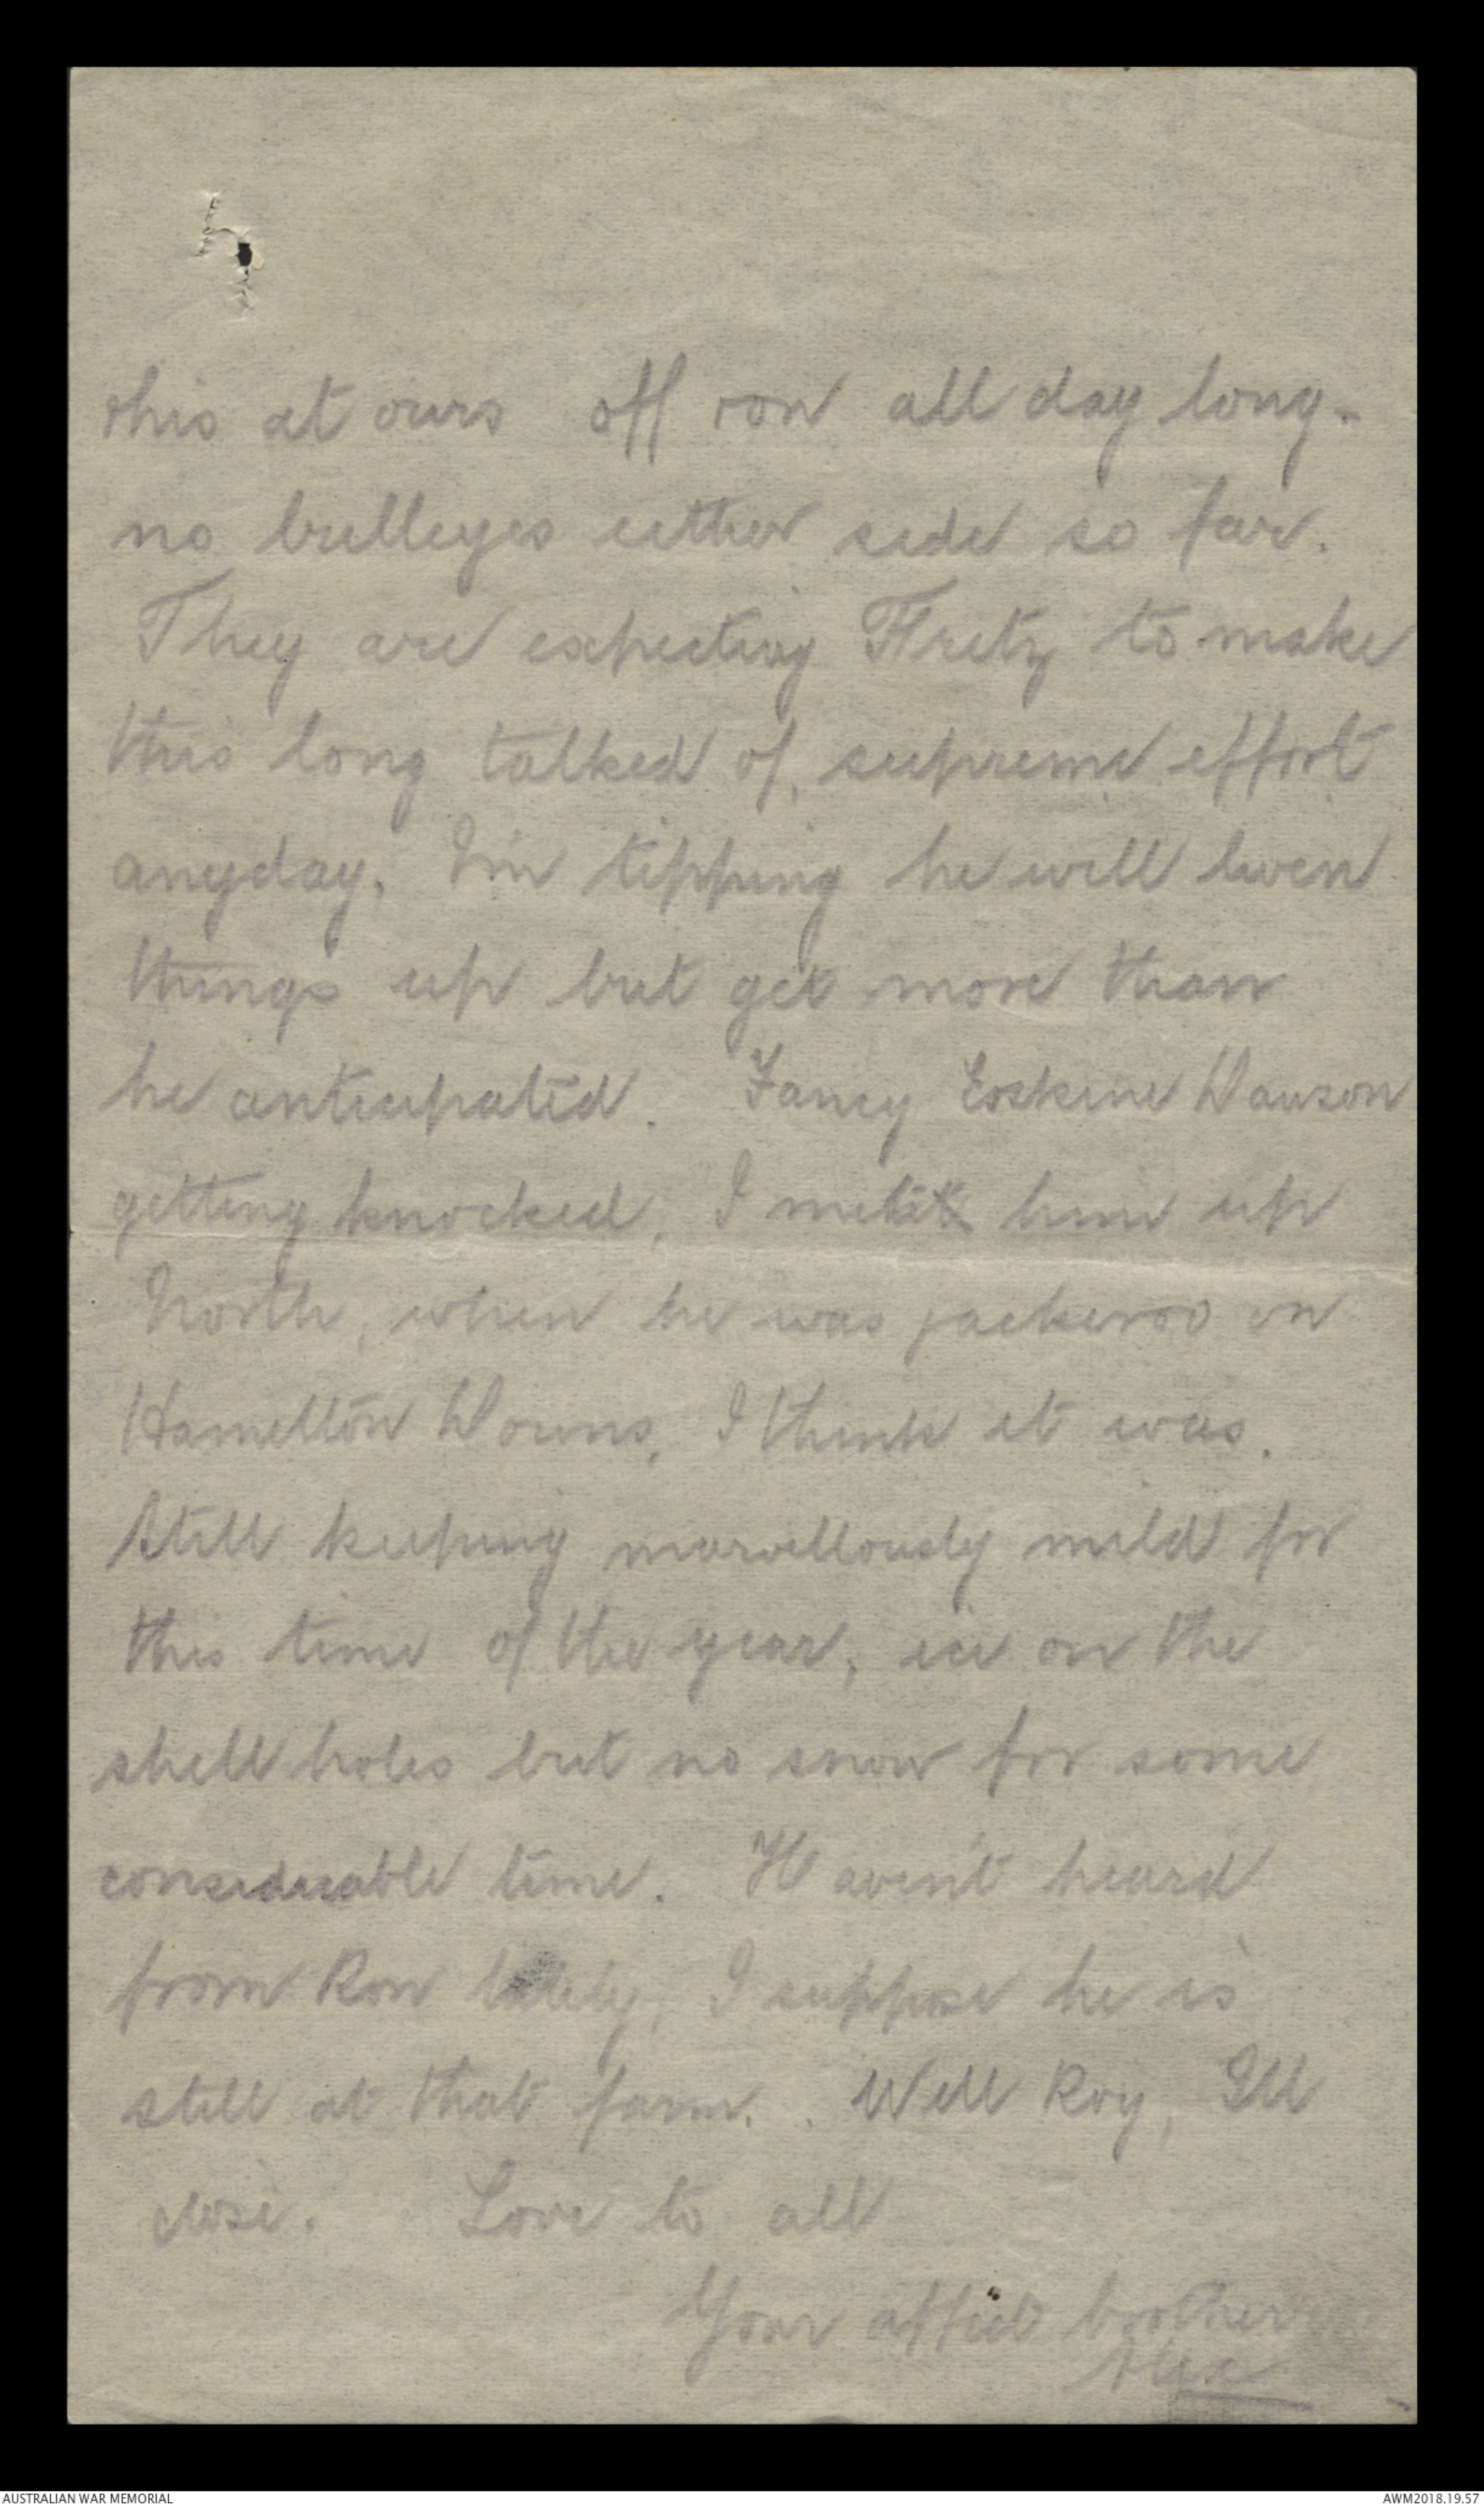 his at ours off & on all day long.
no bulleyes either side so far.
They are expecting Fritz to make
this long talked of, supreme effort
anyday. I'm tipping he will liven
things up but get more than
he anticipated. Fancy Erskine Dawson
getting knocked, I met him up
North, when he was jackeroo on
Hamilton Downs, I think it was.
Still keeping marvellously mild for
this time of the year, ice on the
shell holes but no snow for some
considerable time. Haven't heard
from Ron lately, I suppose he is
still at that farm. Well Roy, Ill
close. Love to all
Your affect brother
Alex
AUSTRALIAN WAR MEMORIAL
AWM2018.19.57